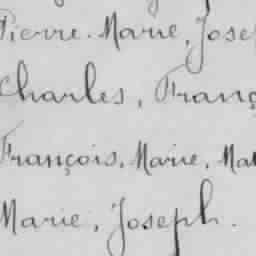 Pierre. Marie, Josep
Charles, Franç
François, Marie, Mat
Marie, Joseph.